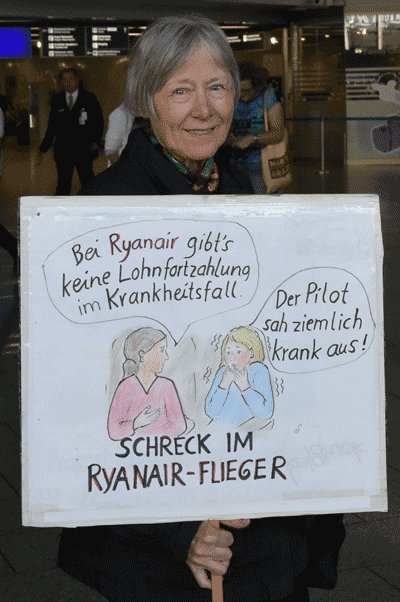 Bei Ryanair gibt's
keine Lohnfortzahlung
im Krankheitsfall.
Der Pilot
sah ziemlich
krank aus!
SCHRECK IM
RYANAIR-FLIEGER